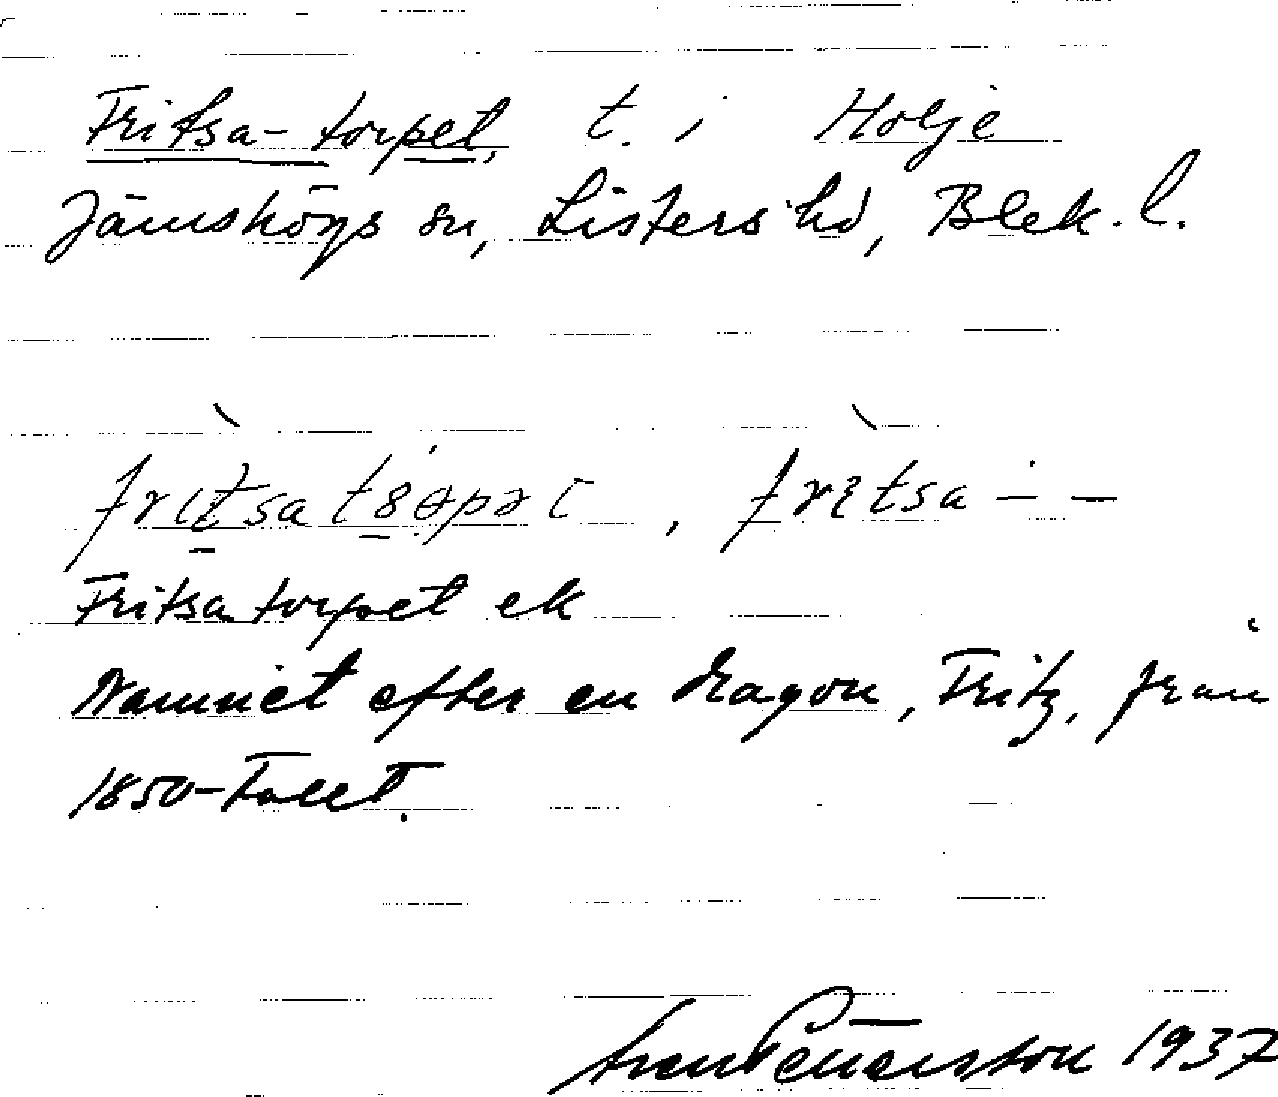 Fritsa-torpet, t. i Holje
Jämshögs sn, Listers hd, Blek. l.
Fritsatorpet ek
Namnet efter en dragon, Fritz, från
1850-talet.
1937